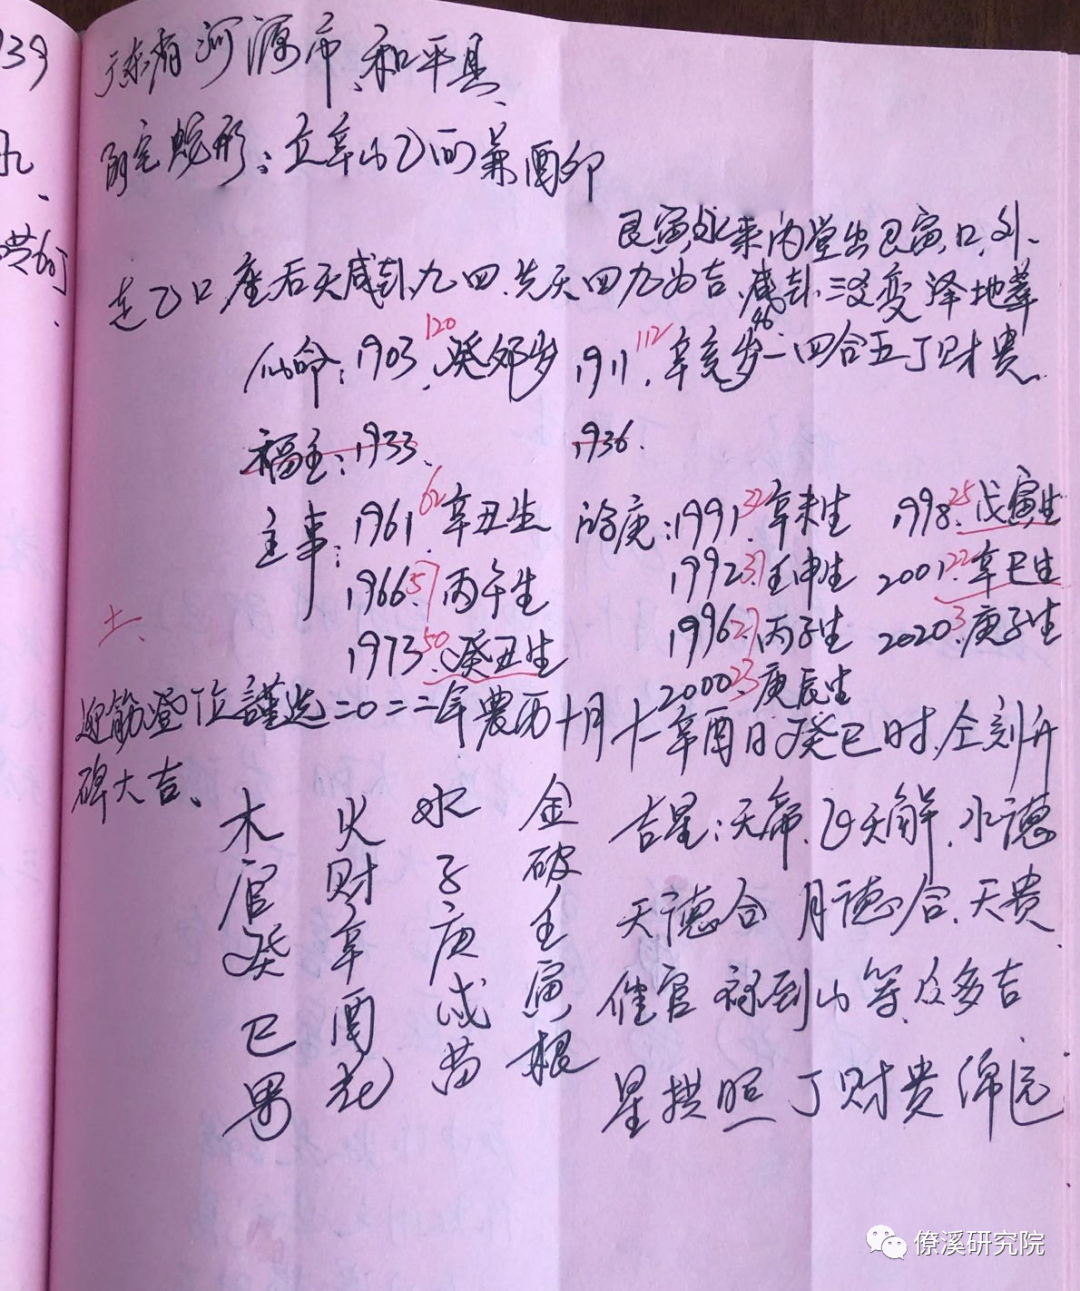 939
广东省河源市、和平县、
阴宅蛇形：立辛山乙向兼酉卯
艮寅水来内堂出艮寅口，外
走乙口，座后天咸卦九四、先天四九为吉，咸卦三爻变泽地萃
仙命：1903 120 癸卯岁 1911 112 辛亥岁 一四合五丁财贵
福主：1933 1936.
主事：1961 62 辛丑生 1991 32 辛未生 1998 25 戊寅生
1966 57 丙午生 1992 31 壬申生 2001 22 辛巳生
1973 50 癸丑生 1996 27 丙子生 2020 3 庚子生
2000 23 庚辰生
土
登位謹选二0二二年農历十月十一辛酉日癸巳时，全刻升
碑大吉、
木 火 水 金
官 财 子 破
癸 辛 庚 壬
巳 酉 戌 寅
果 花 苗 根
吉星：天帝、天解、水德
天德合 月德合、天贵
催官 禄到山等众多吉
星拱照 丁财贵绵远
僚溪研究院